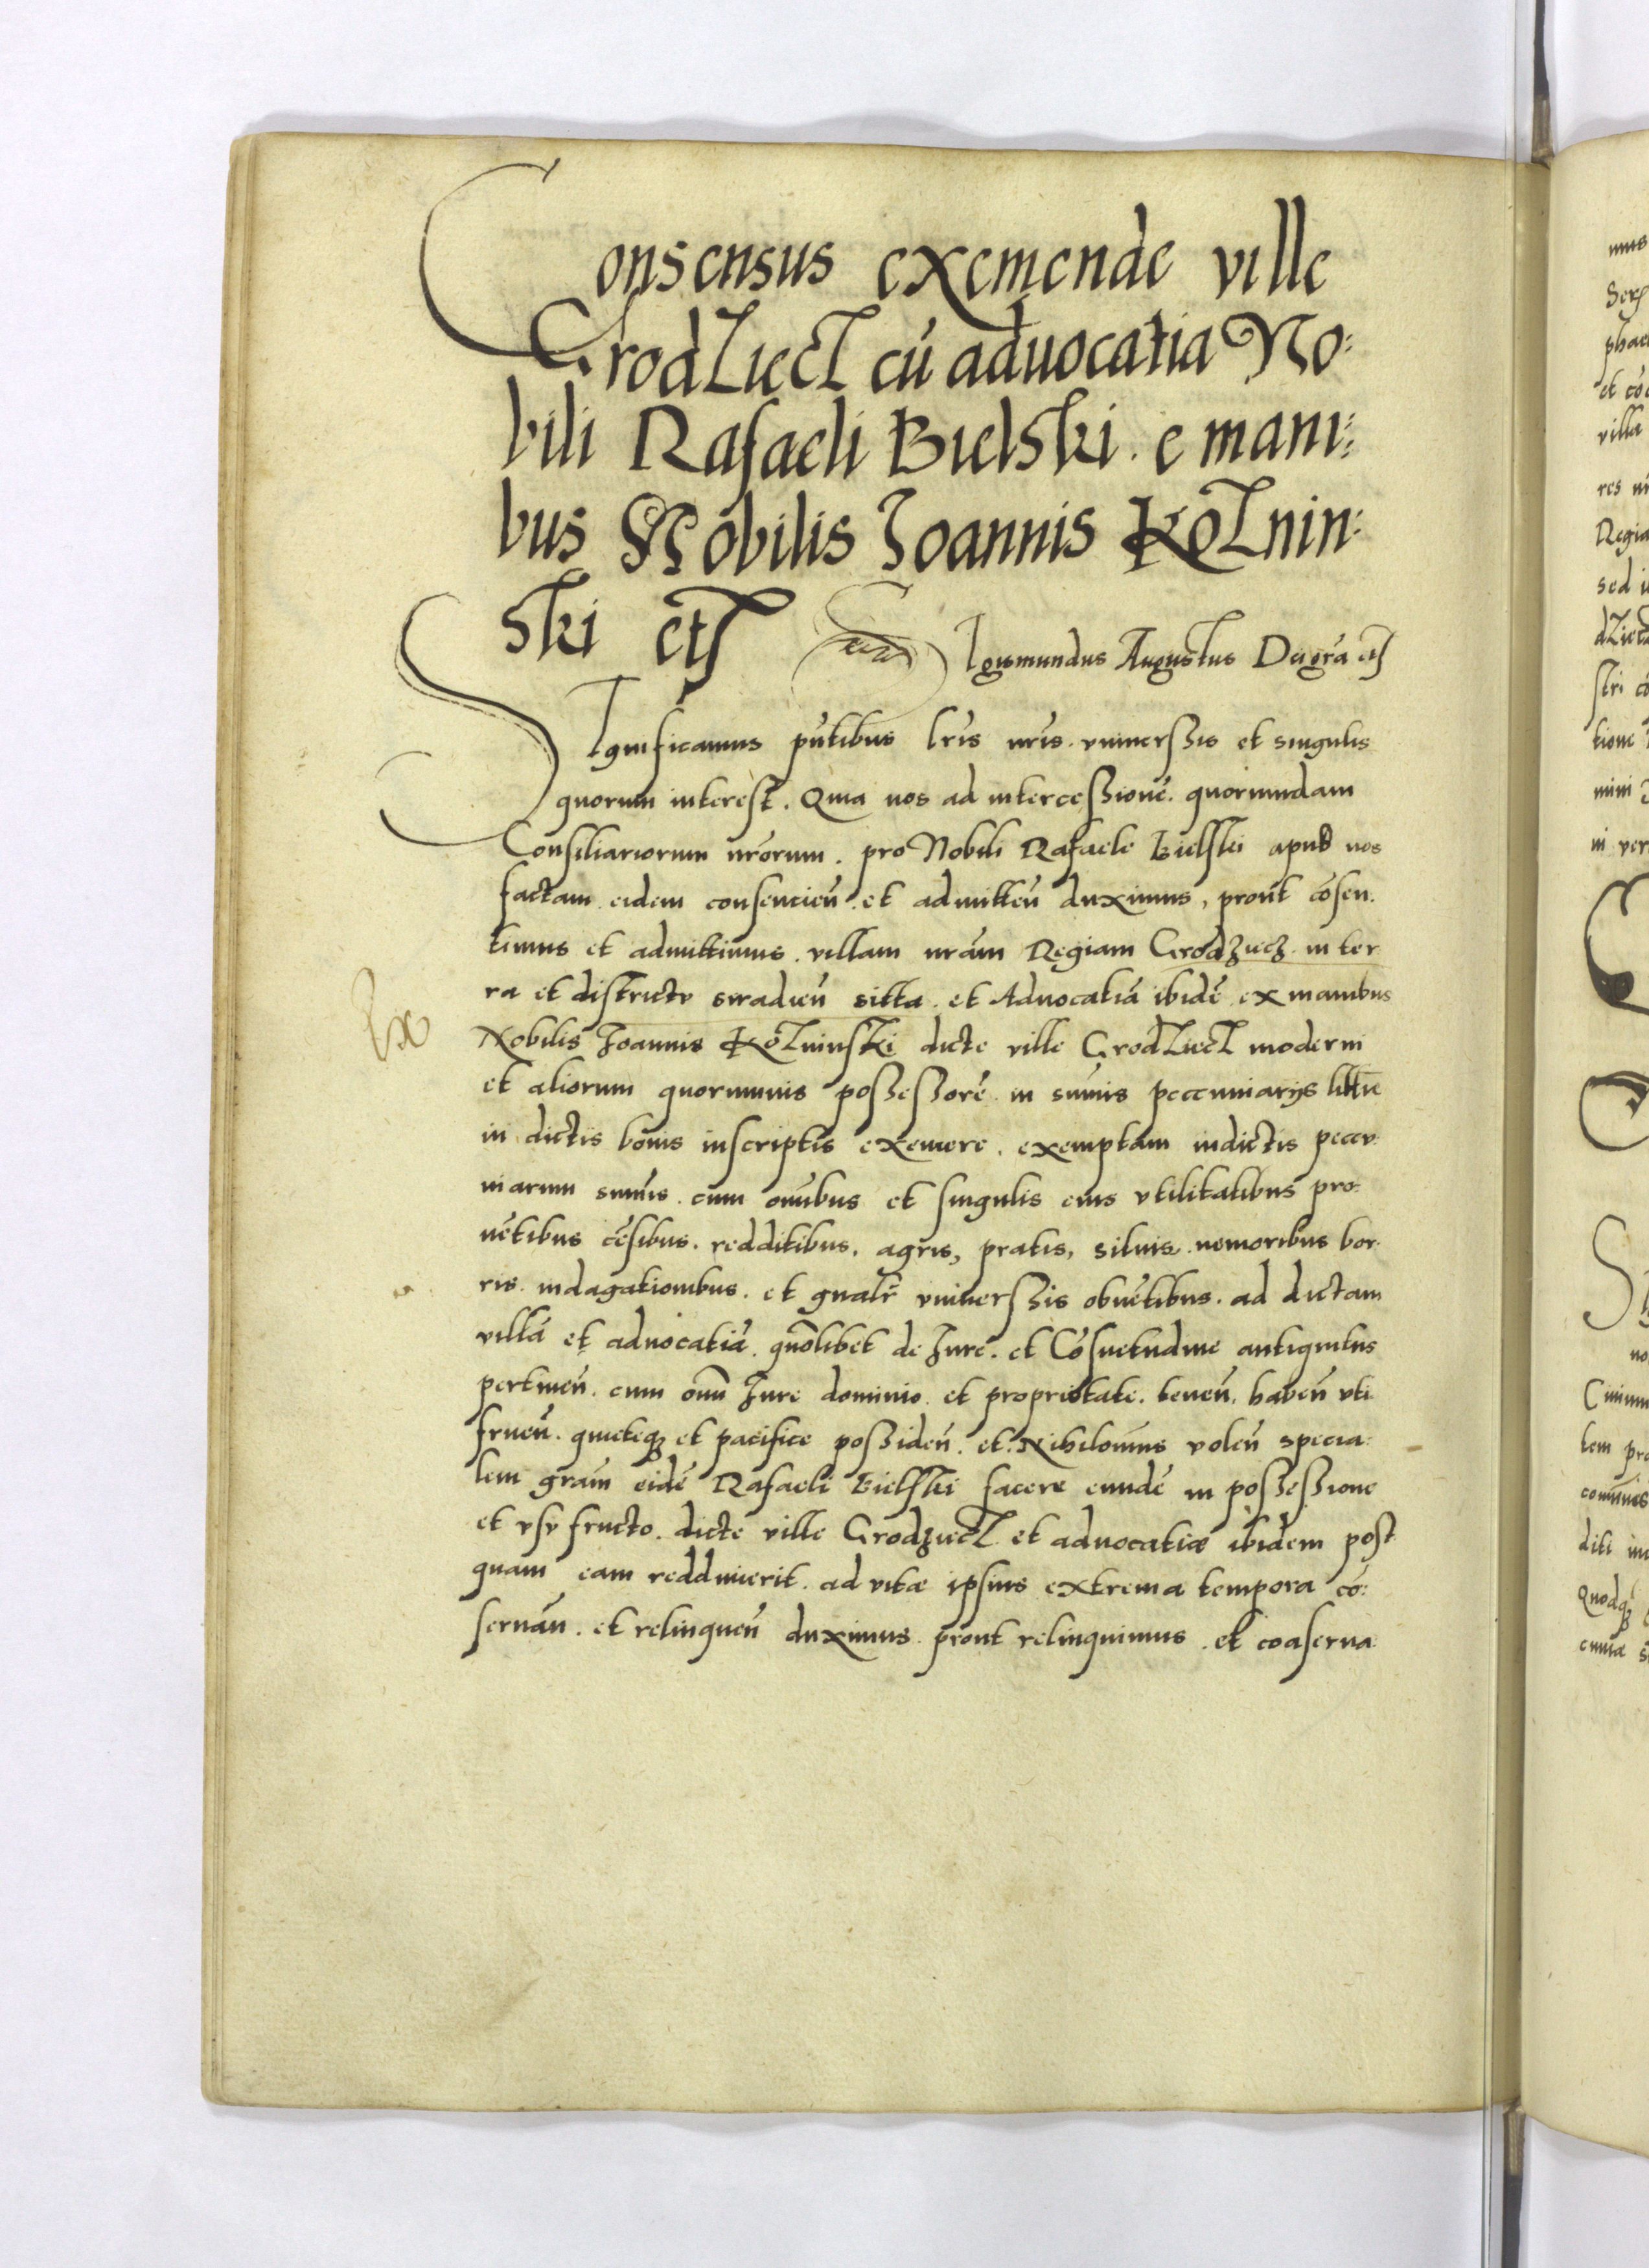 Consensus exemende ville
Grodziecz cū aduocatia No:
bili Rafaeli Bielski. e mani:
bus Nobilis Joannis Koznin:
ski etc
Sigismundus Augustus Dei grā etc
Significamus pñtibus lr̃is nr̃is. vniuerssis et singulis
quorum interest. Quia nos ad intercessionē. quorundam
Consiliariorum nr̃orum. pro Nobili Rafaele Bielski apud nos
factam eidem consencień. et admitteń duximus, prout cōsen.
timus et admittimus. villam nrām Regiam Grodziecz in ter
ra et districtv siradień sitta. et Aduocatiā ibidē ex manibus
Nobilis Joannis Kozninski dicte ville Grodziecz moderni
et aliorum quorumuis possessorē in sum̄is peccuniarijs
in dictis bonis inscriptis exemere. exemptam in dictis peccv
niarum sum̄is. cum om̄ibus et singulis eius vtilitatibus pro:
uētibus cēsibus. redditibus. agris, pratis, siluis. nemoribus bor
ris. indagationibus. et gn̄alr̃ vniuerssis obuētibus. ad dictam
villā et aduocatiā. quōlibet de Jure. et Cōsuetudine antiquitus
pertineń. cum om̄i Jure dominio. et proprietate. teneń. habeń vti
frueń. quieteqз et pacifice possideń. et Nihilomīus voleń specia:
lem grām eidē Rafaeli Bielski facere eundē in possessione
et vsv fructo. dicte ville Grodziecz et aduocatiæ ibidem post
quam eam reddimerit. ad vitæ ipsius extrema tempora cō:
seruań. et relinqueń duximus. prout relinquimus. et coaserua